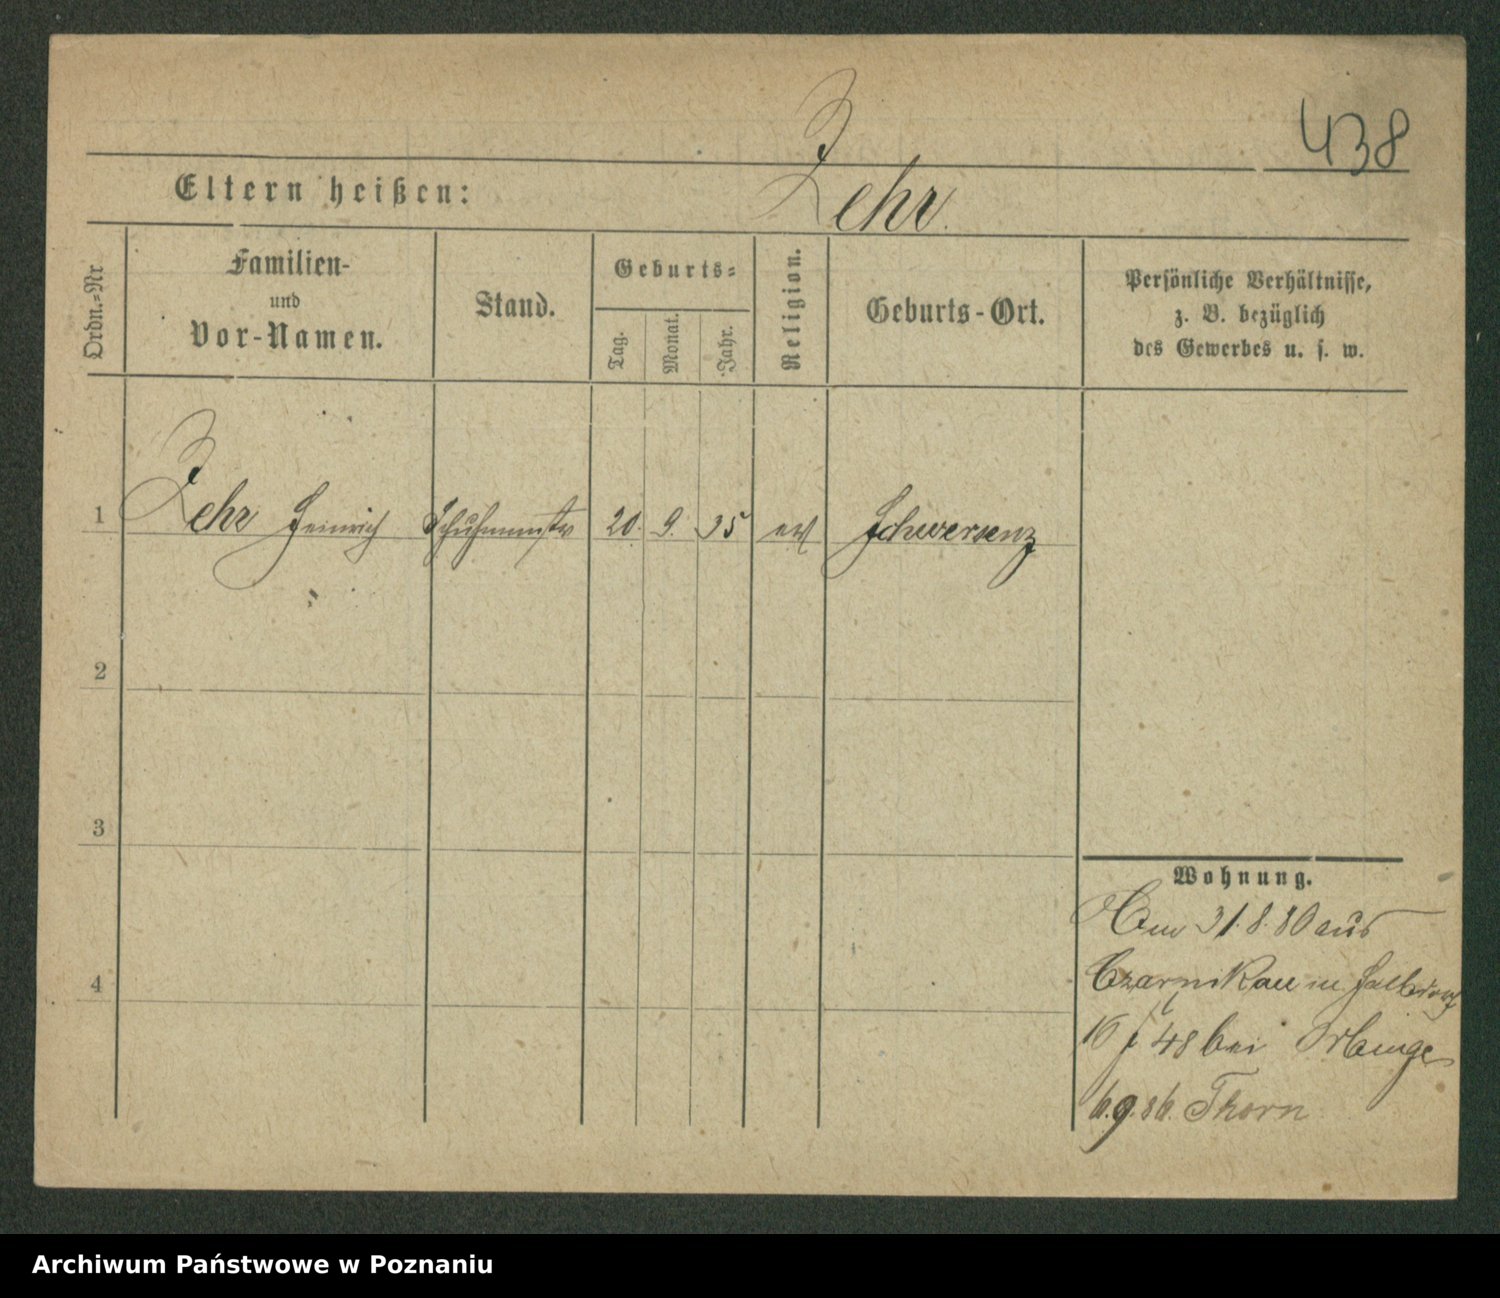 438
Zehr
Eltern heißen:
Ordn.=Nr
Familien-
und
Vor-Namen.
Stand.
Geburts=
Tag.
Monat.
Jahr.
Religion.
Geburts-Ort.
Persönliche Verhältnisse,
z. B. bezüglich
des Gewerbes u. s. w.
1 Zehr Heinrich 20. 9. 35 Schwersenz
2
3
4
Wohnung.
31.8.80 aus
Czarnikau in Halbdorf
16 48 bei
6.9.86. Thorn
Archiwum Państwowe w Poznaniu